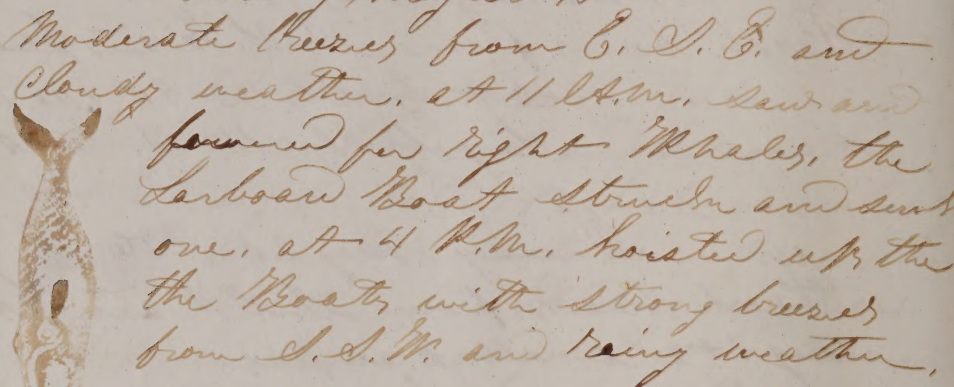 Moderate breezes from E. S. E. and
Cloudy weather. at 11 A.M. saw and
for right Whales, the
Larboard Boat struck and sunk
one. at 4 P.M. hoisted up the
the Boats with strong breezes
from S. S. W. and rainy weather.